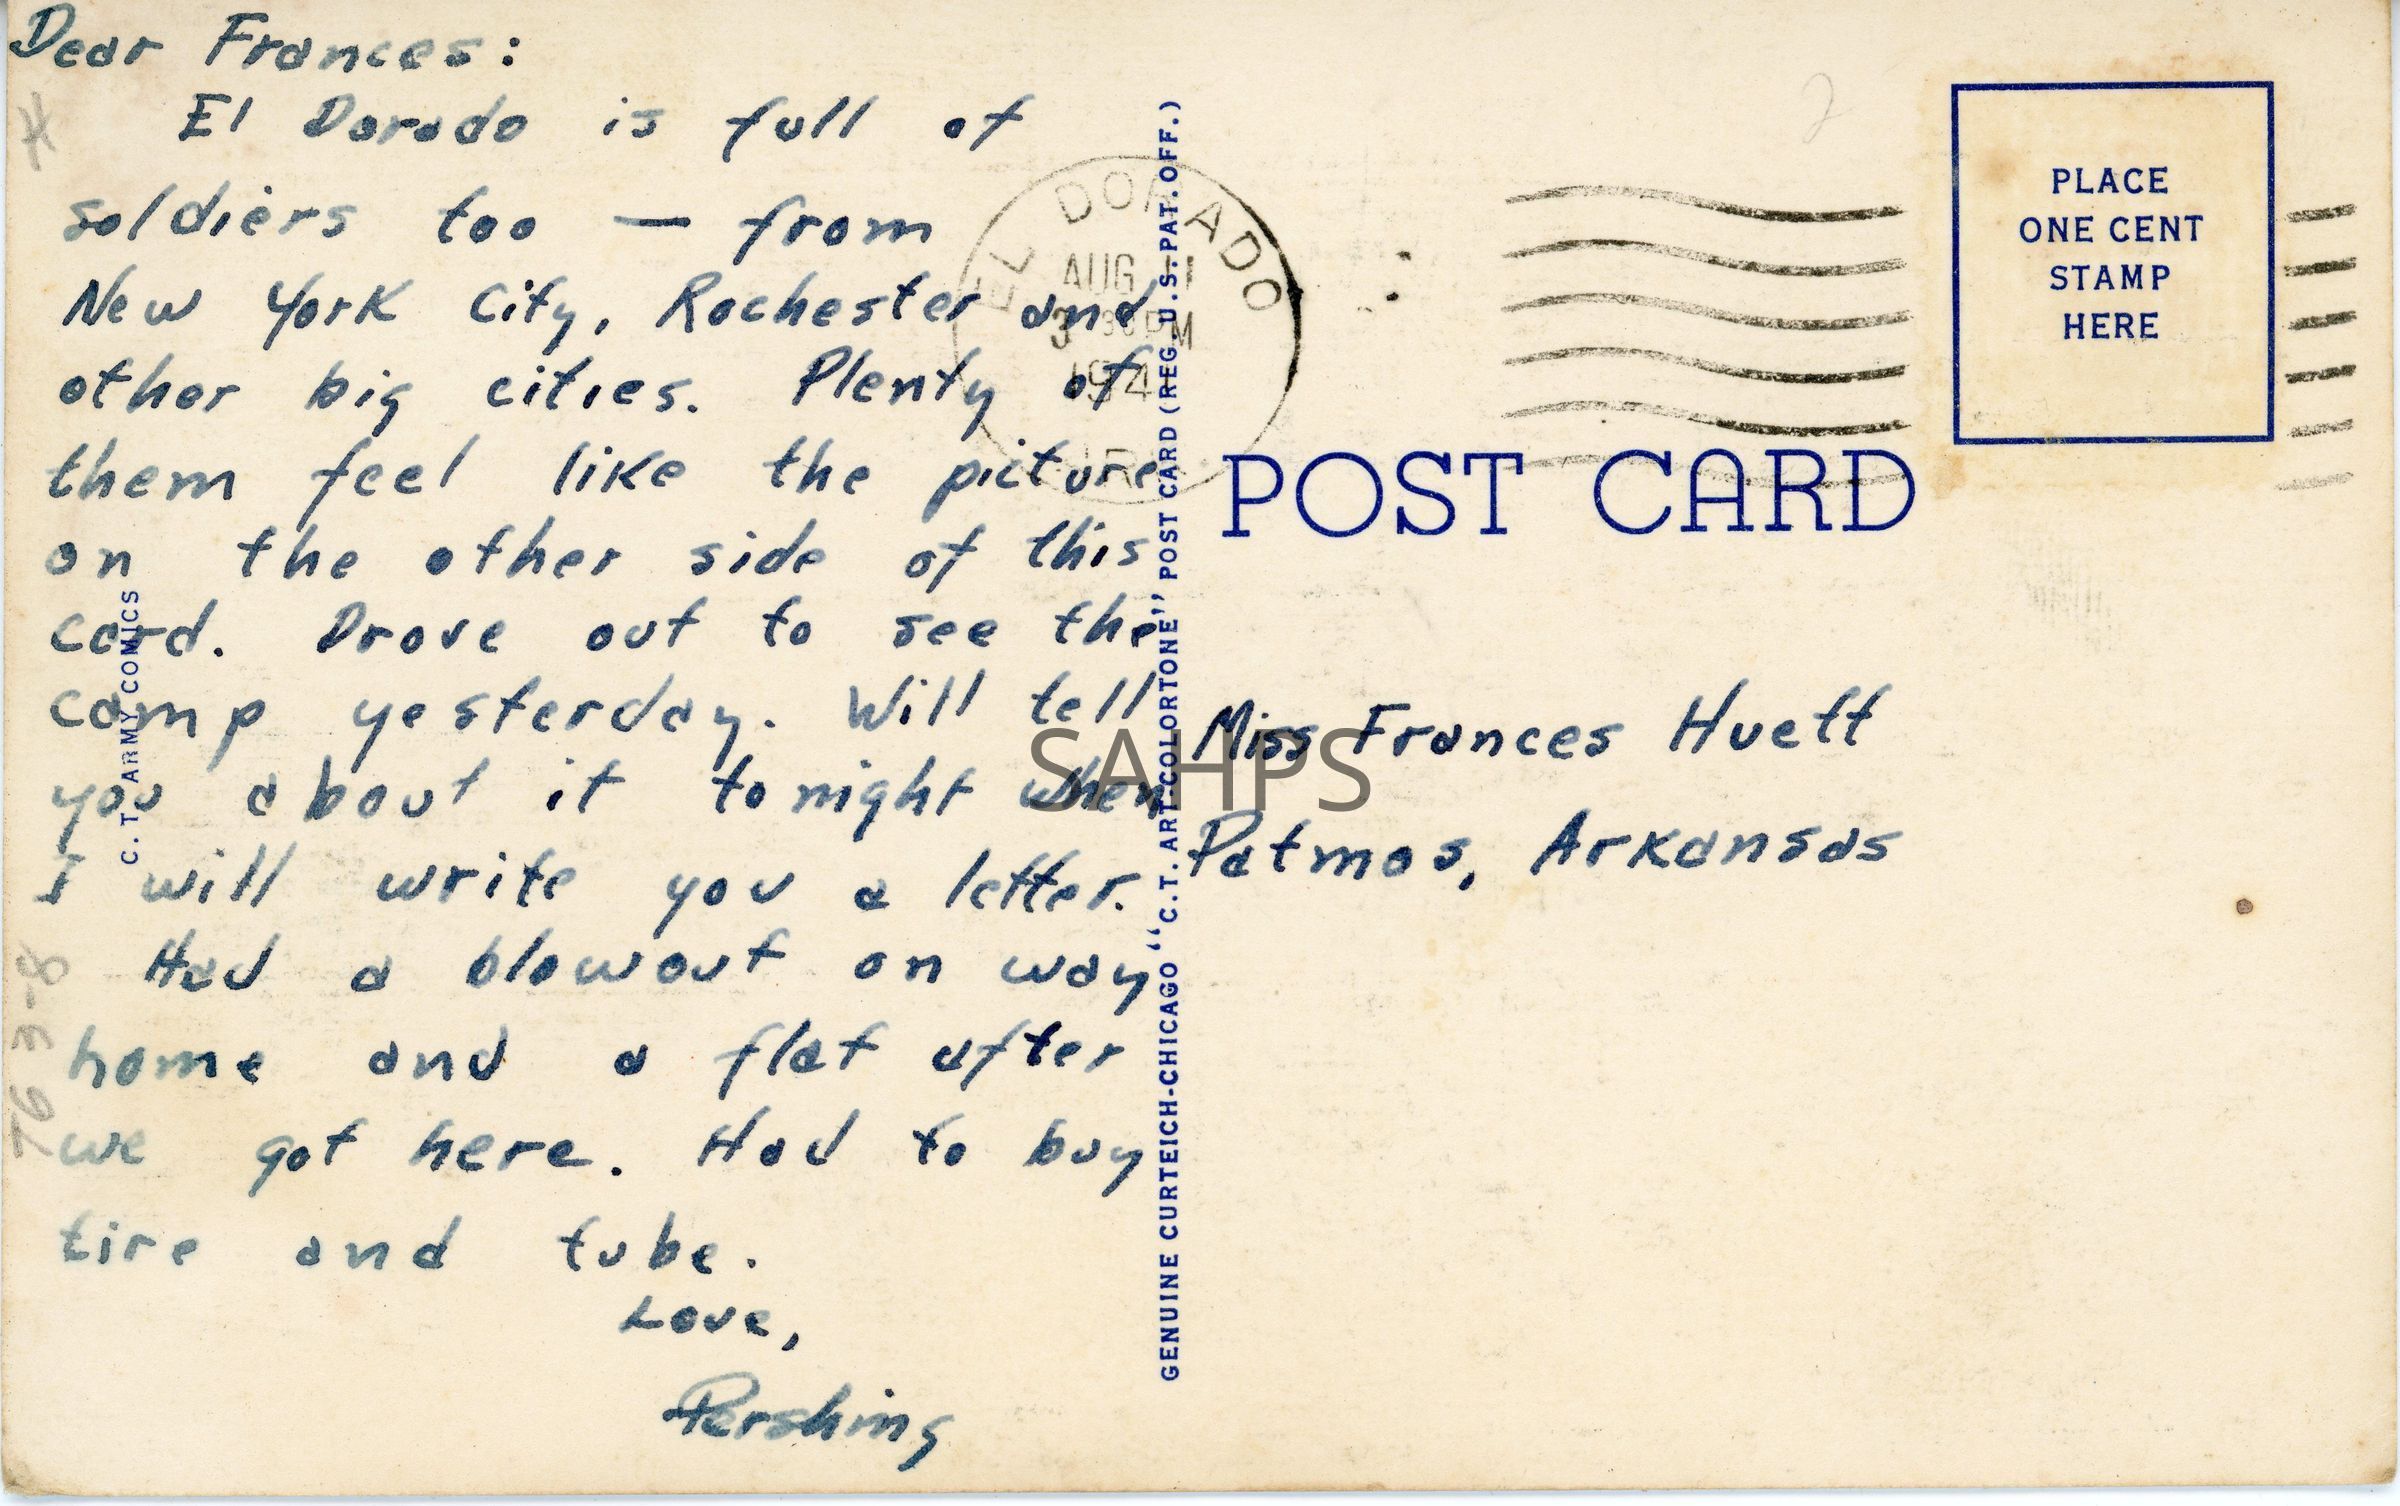 Dear Frances:
El Dorado is full of
soldiers too — from
New York City, Rochester and
other big cities. Plenty of
them feel like the picture
on the other side of this
card. Drove out to see the
camp yesterday. Will tell
you about it tonight when
I will write you a letter.
Had a blowout on way
home and a flat after
we got here. Had to buy
tire and tube.
Love,
Pershing
C. T. ARMY COMICS
763-8
GENUINE CURTEICH-CHICAGO "C.T. ART-COLORTONE" POST CARD (REG. U.S. PAT. OFF.)
EL DORADO
AUG
PM
POST CARD
PLACE
ONE CENT
STAMP
HERE
2
Miss Frances Huett
Patmos, Arkansas
SAHPS